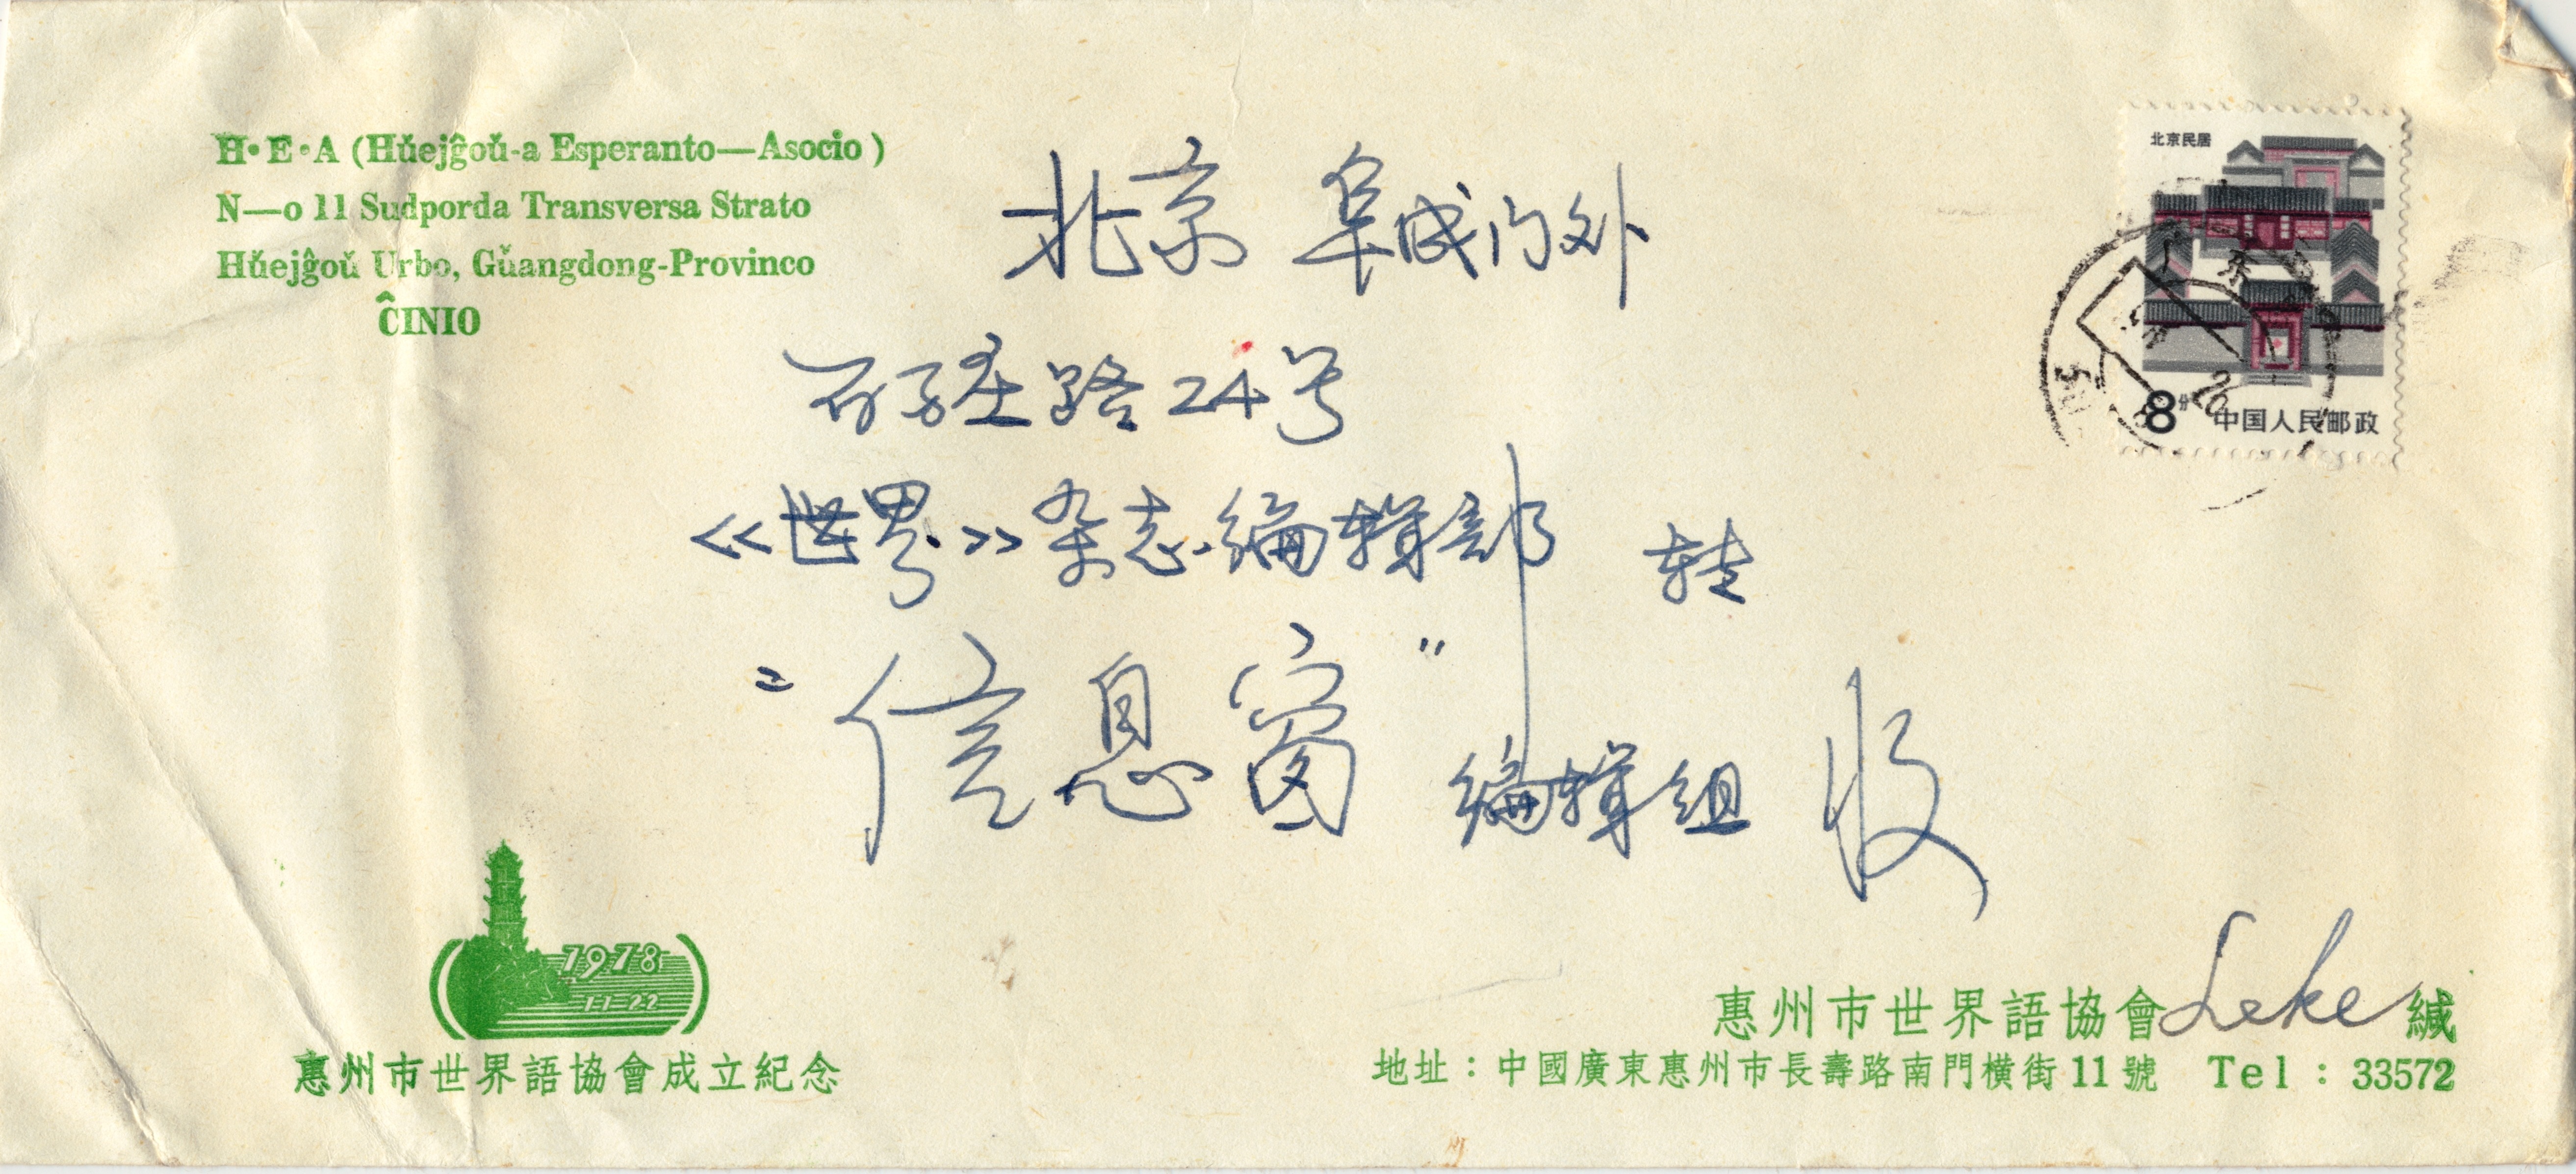 H·E·A (Hŭejĝoŭ-a Esperanto—Asocio)
N—o 11 Sudporda Transversa Strato
Hŭejĝoŭ Urbo, Gŭangdong-Provinco
ĈINIO
北京民居
8分 中国人民邮政
广东
北京 阜成门外
百万庄路24号
《世界》杂志编辑部 转
“信息窗” 编辑组 收
1978
11-22
惠州市世界語協會成立紀念
惠州市世界語協會 Leke 緘
地址：中國廣東惠州市長壽路南門橫街11號 Tel：33572